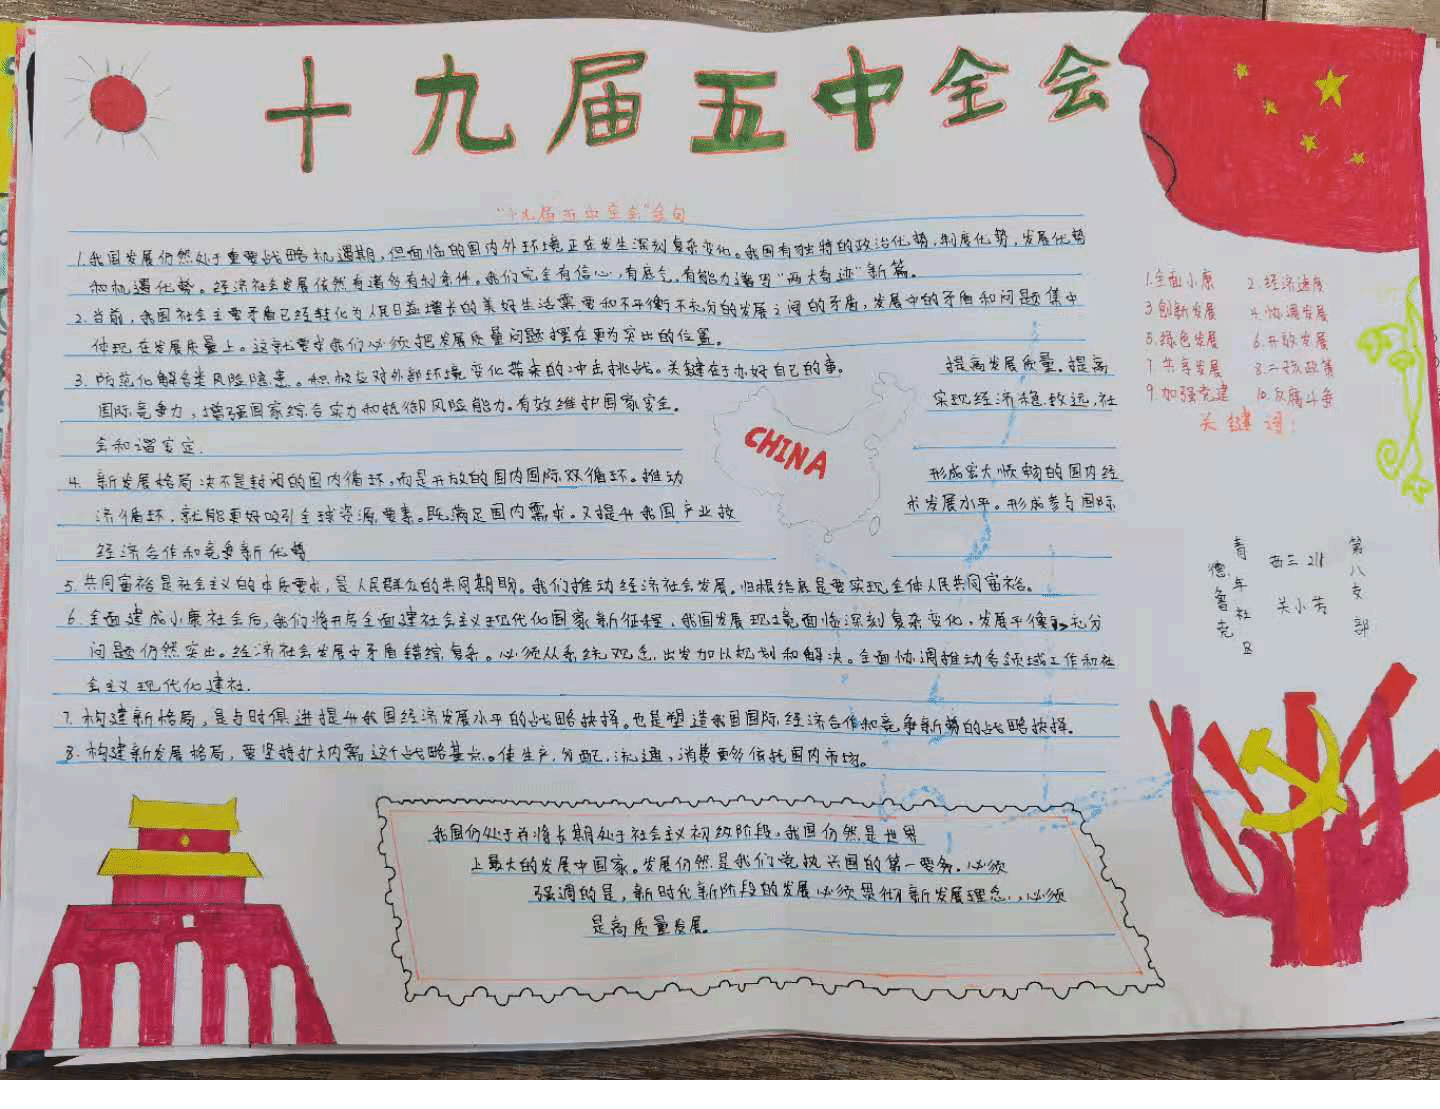 十九届五中全会
"十九届五中全会"金句
1.我国发展仍然处于重要战略机遇期，但面临的国内外环境正在发生深刻复杂变化。我国有独特的政治优势，制度优势，发展优势
和机遇优势。经济社会发展依然有诸多有利条件。我们完全有信心，有底气，有能力谱写"两大奇迹"新篇。
2.当前，我国社会主要矛盾已经转化为人民日益增长的美好生活需要和不平衡不充分的发展之间的矛盾，发展中的矛盾和问题集中
体现在发展质量上。这就要求我们必须把发展质量问题摆在更为突出的位置。
3.防范化解各类风险隐患。积极应对外部环境变化带来的冲击挑战。关键在于办好自己的事。提高发展质量。提高
国际竞争力，增强国家综合实力和抵御风险能力。有效维护国家安全。实现经济稳致远，社
会和谐安定.
4.新发展格局决不是封闭的国内循环，而是开放的国内国际双循环。推动形成宏大顺畅的国内经
济循环，就能更好吸引全球资源要素。既满足国内需求。又提升我国产业技术发展水平。形成参与国际
经济合作和竞争新优势
5.共同富裕是社会主义的本质要求，是人民群众的共同期盼。我们推动经济社会发展。归根结底是要实现全体人民共同富裕。
6.全面建成小康社会后，我们将开启全面建社会主义现代化国家新征程，我国发展环境面临深刻复杂变化，发展不平衡不充分
问题仍然突出。经济社会发展中矛盾错综复杂。必须从系统观念出发加以规划和解决。全面协调推动各领域工作和社
会主义现代化建社.
7.构建新格局，是与时俱进提升我国经济发展水平的战略抉择。也是塑造我国国际经济合作和竞争新势的战略抉择.
8.构建新发展格局，要坚持扩大内需这个战略基点。使生产，分配，流通，消费更多依托国内市场。
CHINA
1.全面小康 2.经济速度
3.创新发展 4.协调发展
5.绿色发展 6.开放发展
7.共享发展 8.二孩政策
9.加强党建 10.反腐斗争
关键词：
第八支部
西三211
关小芳
青年社区
德鲁克
我国仍处于并将长期处于社会主义初级阶段，我国仍然是世界
上最大的发展中国家。发展仍然是我们党执兴国的第一要务。必须
强调的是，新时代新阶段的发展必须贯彻新发展理念，必须
是高质量发展。